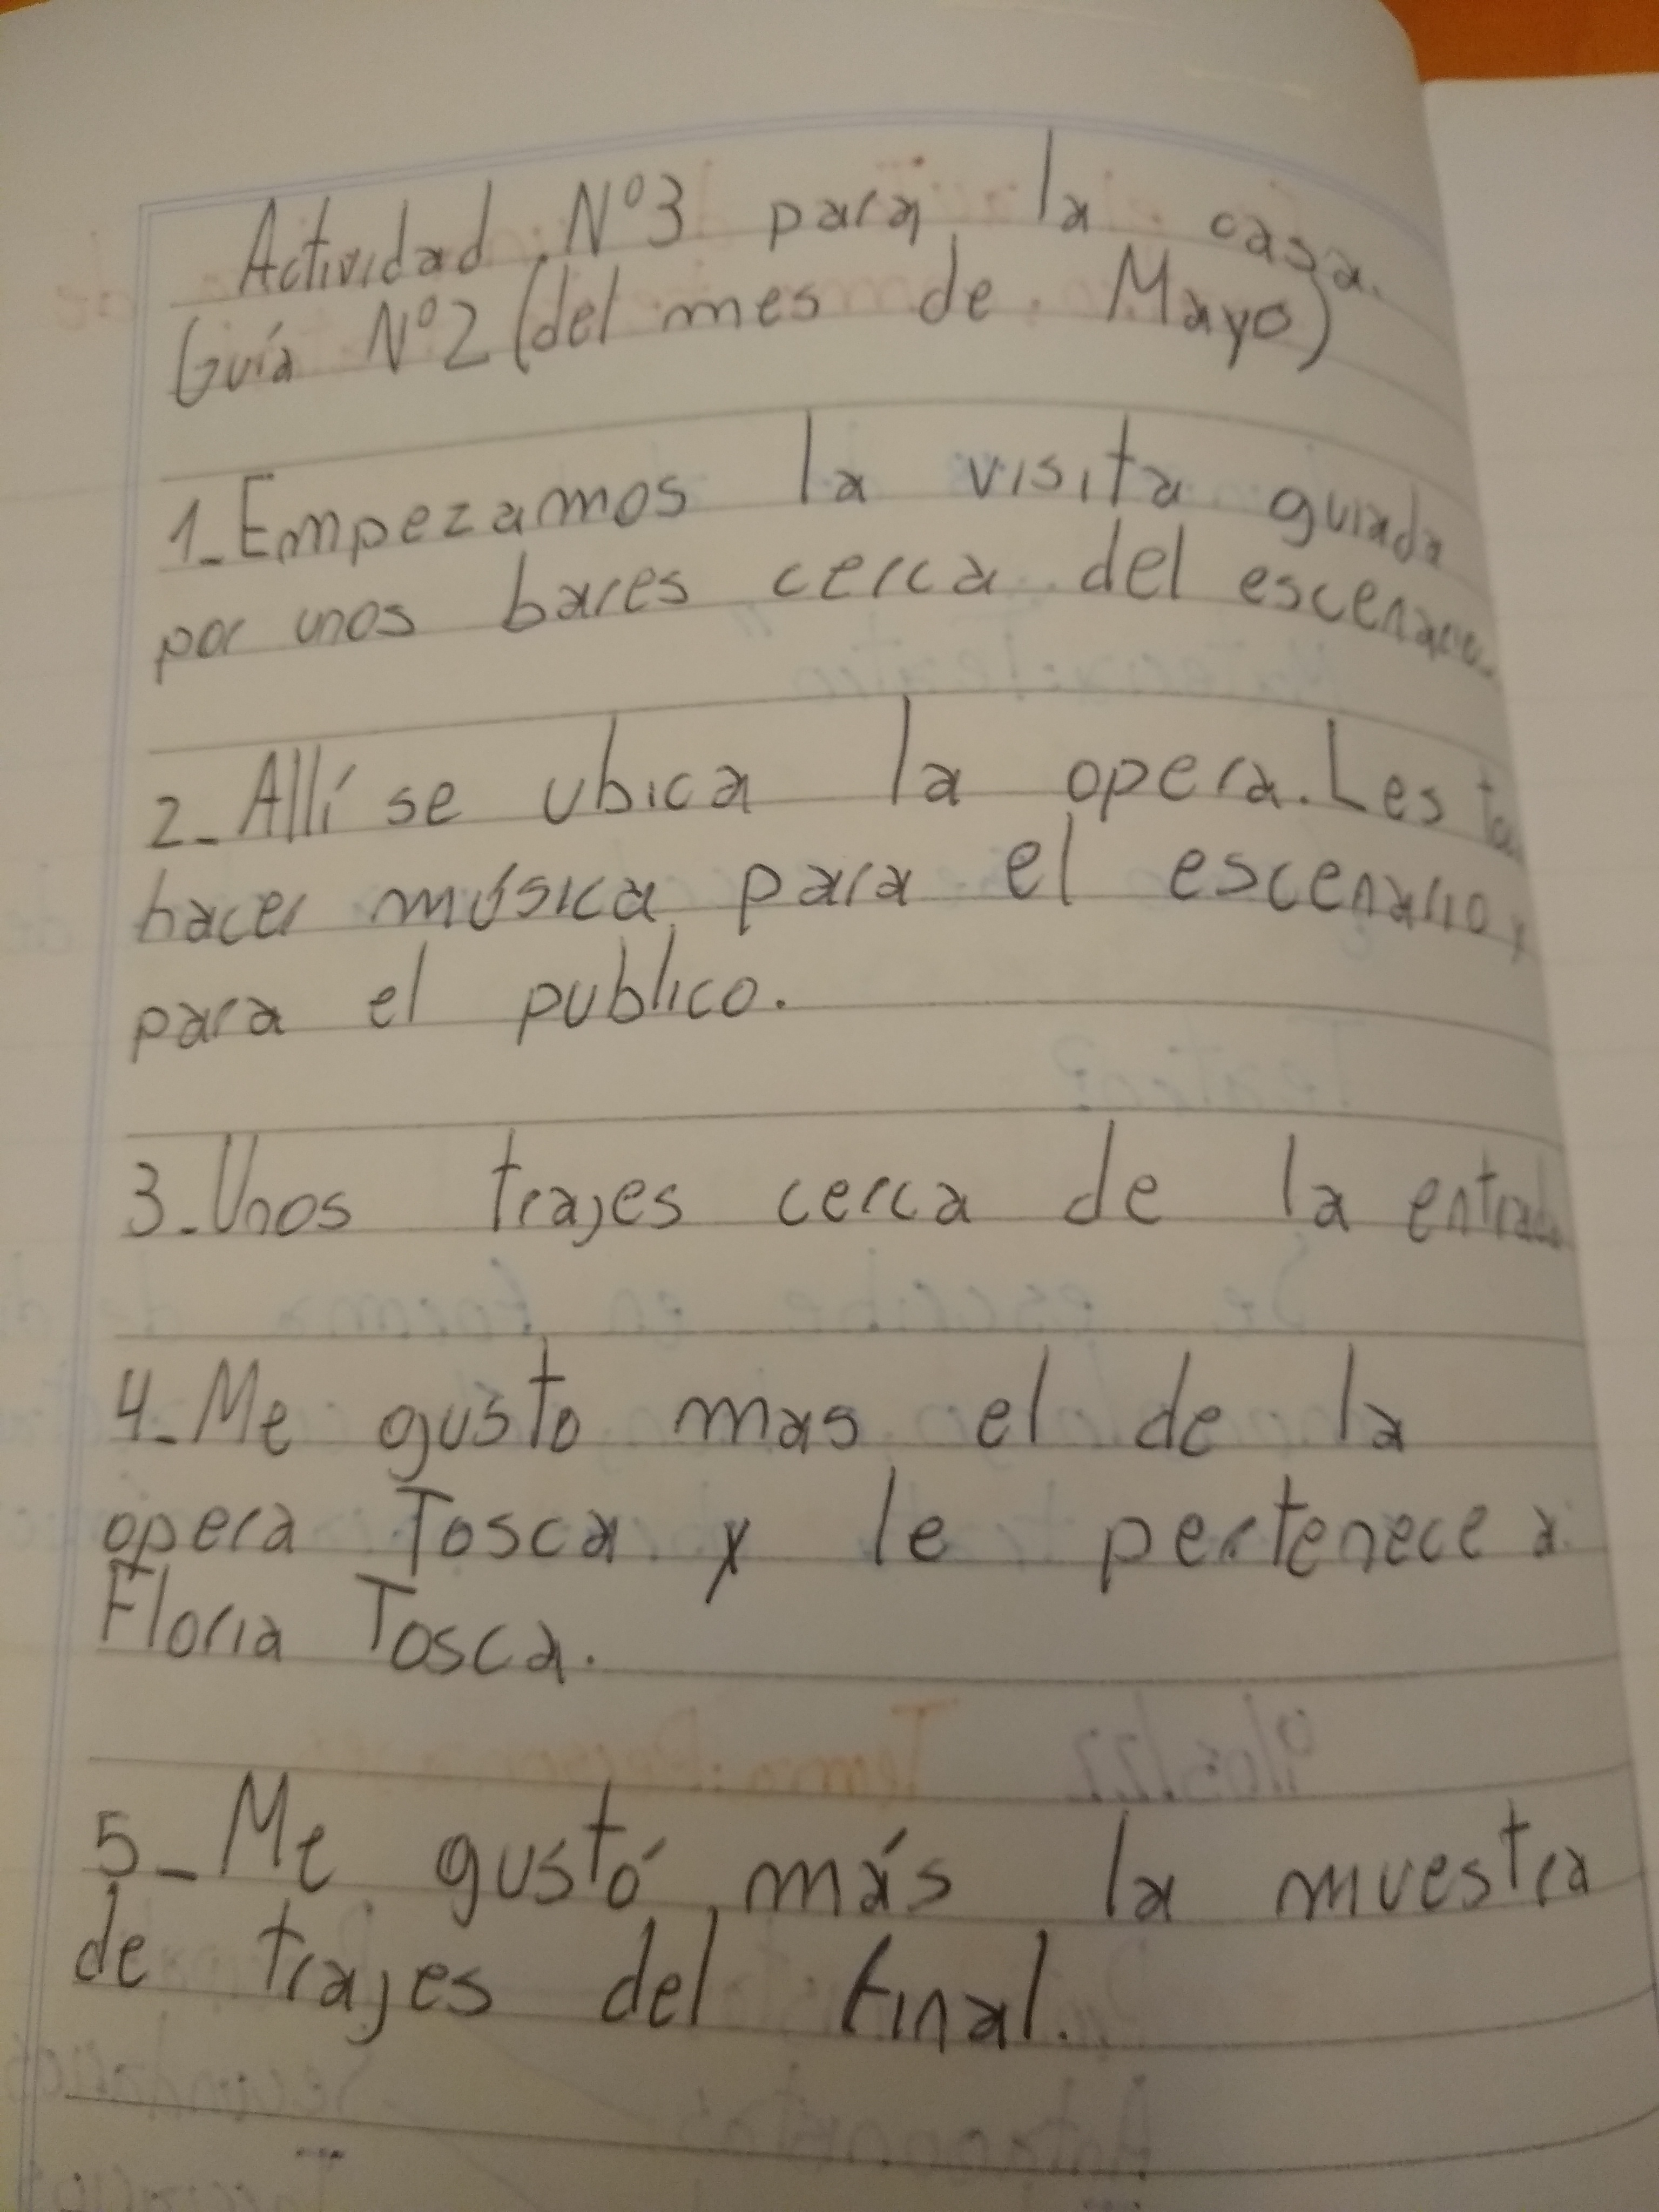 Actividad Nº3 para la casa.
Guía Nº2 (del mes de Mayo)
1_Empezamos la visita guiada
por unos bares cerca del escenario.
2_Allí se ubica la opera. Les
hacer música para el escenario y
para el publico.
3_Unos trajes cerca de la entrada
4_Me gusto mas el de la
opera Tosca y le pertenece a
Floria Tosca.
5_Me gustó más la muestra
de trajes del final.